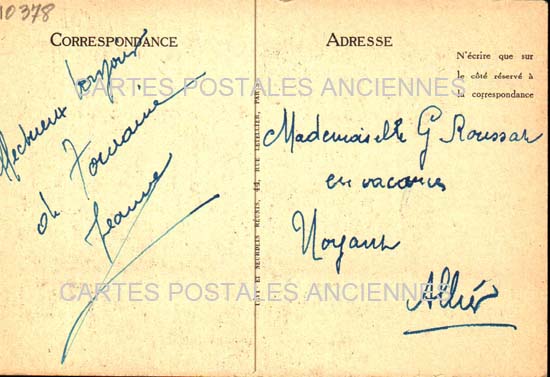 10378
CORRESPONDANCE
Affectueux bonjour
de Touraine
Jeanne
ADRESSE
N'écrire que sur
le côté réservé à
la correspondance
Mademoiselle G Roussat
en vacances
Noyant
Allier
CARTES POSTALES ANCIENNES
CARTES POSTALES ANCIENNES
NEURDEIN RÉUNIS, 44, RUE LETELLIER, PARIS